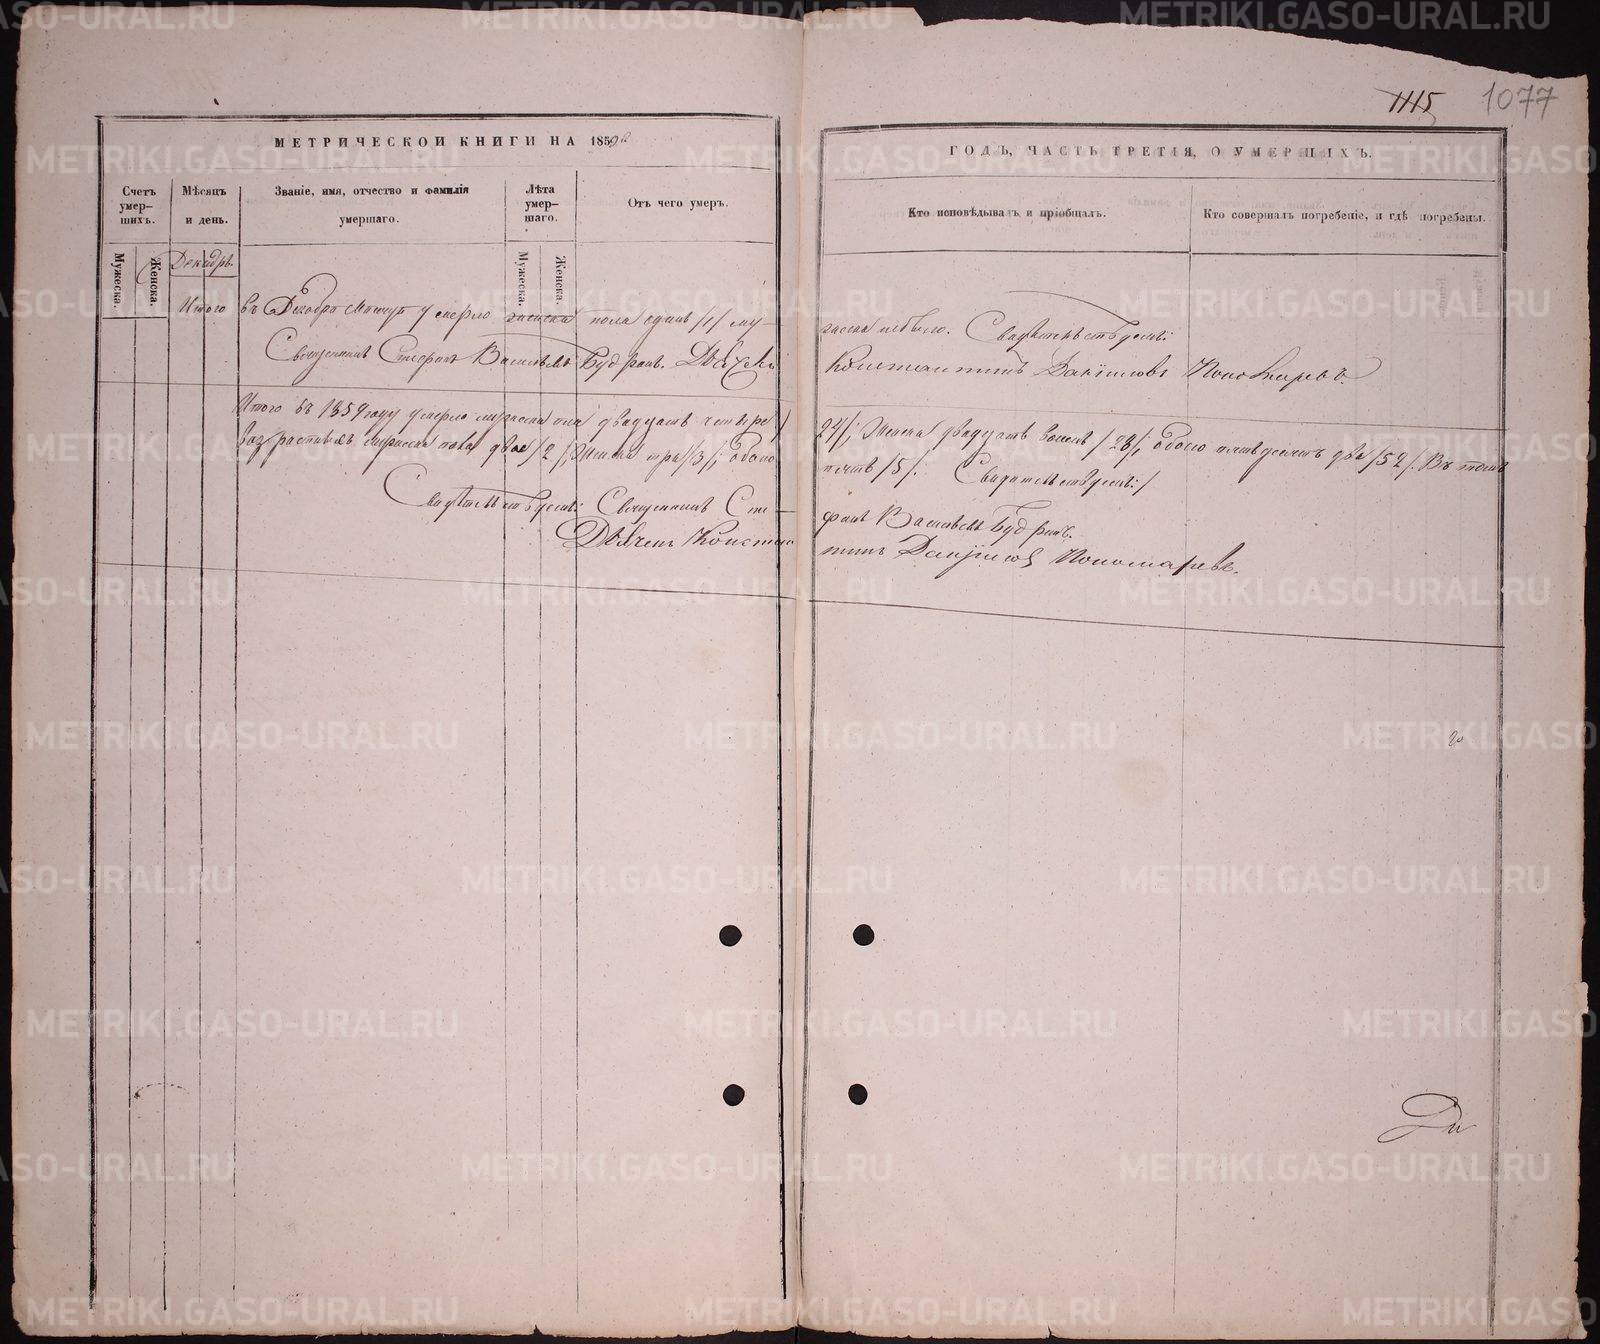 1115 1077
МЕТРИЧЕСКОЙ КНИГИ НА 1859й
ГОДЪ, ЧАСТЬ ТРЕТІЯ, О УМЕРШИХЪ.
Счетъ умер-шихъ.
Мѣсяцъ и день.
Званіе, имя, отчество и фамилія умершаго.
Лѣта умер-шаго.
Отъ чего умеръ.
Кто исповѣдывалъ и пріобщалъ.
Кто совершалъ погребеніе, и гдѣ погребены.
Мужеска.
Женска.
Декабрь.
Мужеска.
Женска.
Итого въ Декабрѣ Мѣсяцѣ умерло женска пола одинъ /1/ му-
жеска небыло. Свидѣтельствуемъ:
Священникъ Стефанъ Васильевъ Будринъ. Дьячекъ
Константинъ Даніиловъ Пономаревъ.
Итого въ 1859 году умерло мужеска пола двадцать четыре /
24/, Женска двадцать восемь /28/, обоего пятьдесятъ два /52/. Въ томъ
возрастныхъ мужеска пола двое /2/, Женска три /3/, обоего
пять /5/. Свидѣтельствуемъ:/
Свидѣтельствуемъ: Священникъ Сте-
фанъ Васильевъ Будринъ.
Дьячекъ Констан
тинъ Даніиловъ Пономаревъ.
Ди
METRIKI.GASO-URAL.RU